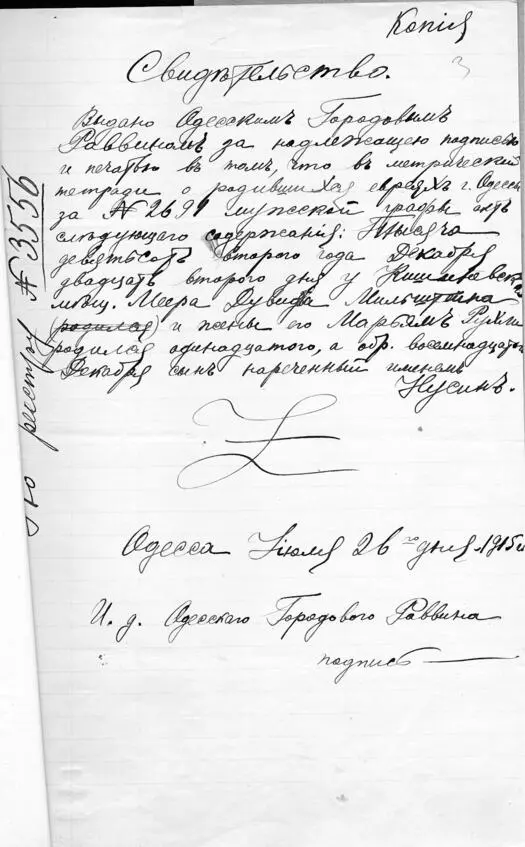 Копія
3
Свидѣтельство.
Выдано Одесскимъ Городовымъ
Раввиномъ за надлежащею подписью
и печатью въ томъ, что въ метрической
тетради о родившихся евреяхъ г. Одессы
за № 2691 мужской графы актъ
слѣдующаго содержанія: Тысяча
девятьсотъ второго года Декабря
двадцать второго дня у
мѣщ. Меера Дувида Мильштейна
(родился) и жены его Марьямъ Рухли
родился одинадцатого, а обр. восемнадцатого
Декабря сынъ нареченный именемъ
Нусинъ.
Одесса Іюля 26 го дня 1915 г.
И. д. Одесскаго Городового Раввина
подпись
По реестру № 3556